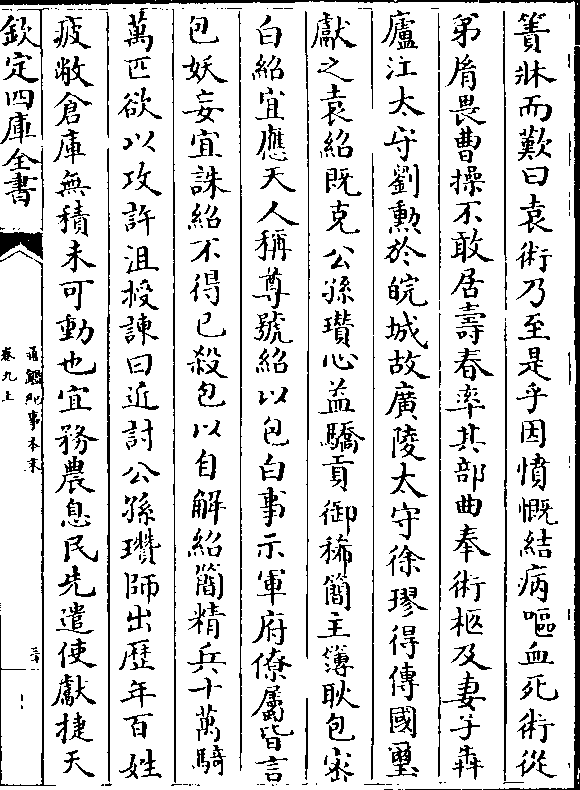 簀牀而歎曰袁術乃至是乎因憤慨結病嘔血死術從
弟脣畏曹操不敢居壽春率其部曲奉術柩及妻子犇
廬江太守劉勲於皖城故廣陵太守徐璆得傳國璽
獻之袁紹既克公孫瓚心益驕貢御稀簡主簿耿包密
白紹宜應天人稱尊號紹以包白事示軍府僚屬皆言
包妖妄宜誅紹不得已殺包以自解紹簡精兵十萬騎
萬匹欲以攻許沮授諫曰近討公孫瓚師出歷年百姓
疲敝倉庫無積未可動也宜務農息民先遣使獻捷天
欽定四庫全書
通鑑紀事本末
卷九上
三十